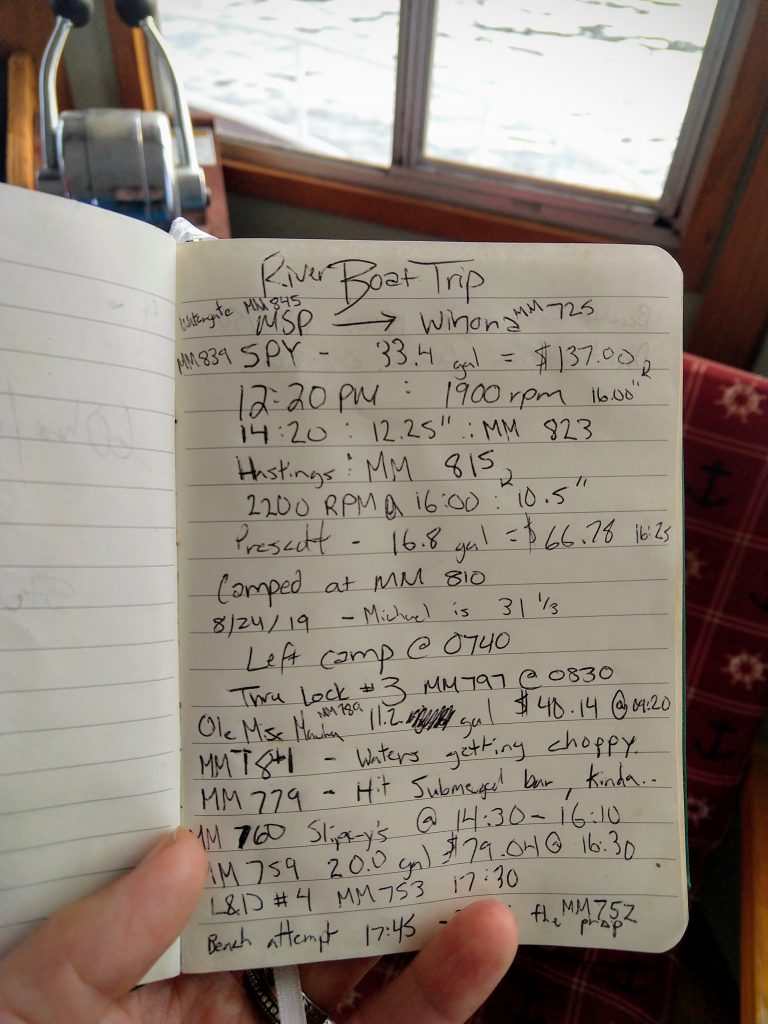 River Boat Trip
Watergate MM 845
MSP → Winona MM 725
MM 839 SPY - 33.4 gal = $137.00
12:20 PM : 1900 rpm 16.00"
14:20 : 12.25" : MM 823
Hastings : MM 815
2200 RPM @ 16:00 : 10.5"
Prescott - 16.8 gal = $66.78 16:25
Camped at MM 810
8/24/19 - Michael is 31 1/3
Left camp @ 0740
Thru Lock #3 MM 797 @ 0830
Ole Mise MM 789 11.2 gal $40.14 @ 09:20
MM 784 - Waters getting choppy.
MM 779 - Hit Submerged bar, kinda..
MM 760 Slippery's @ 14:30 - 16:10
MM 759 20.0 gal $79.04 @ 16:30
L&D #4 MM 753 17:30
Beach attempt 17:45 - the prop MM 752